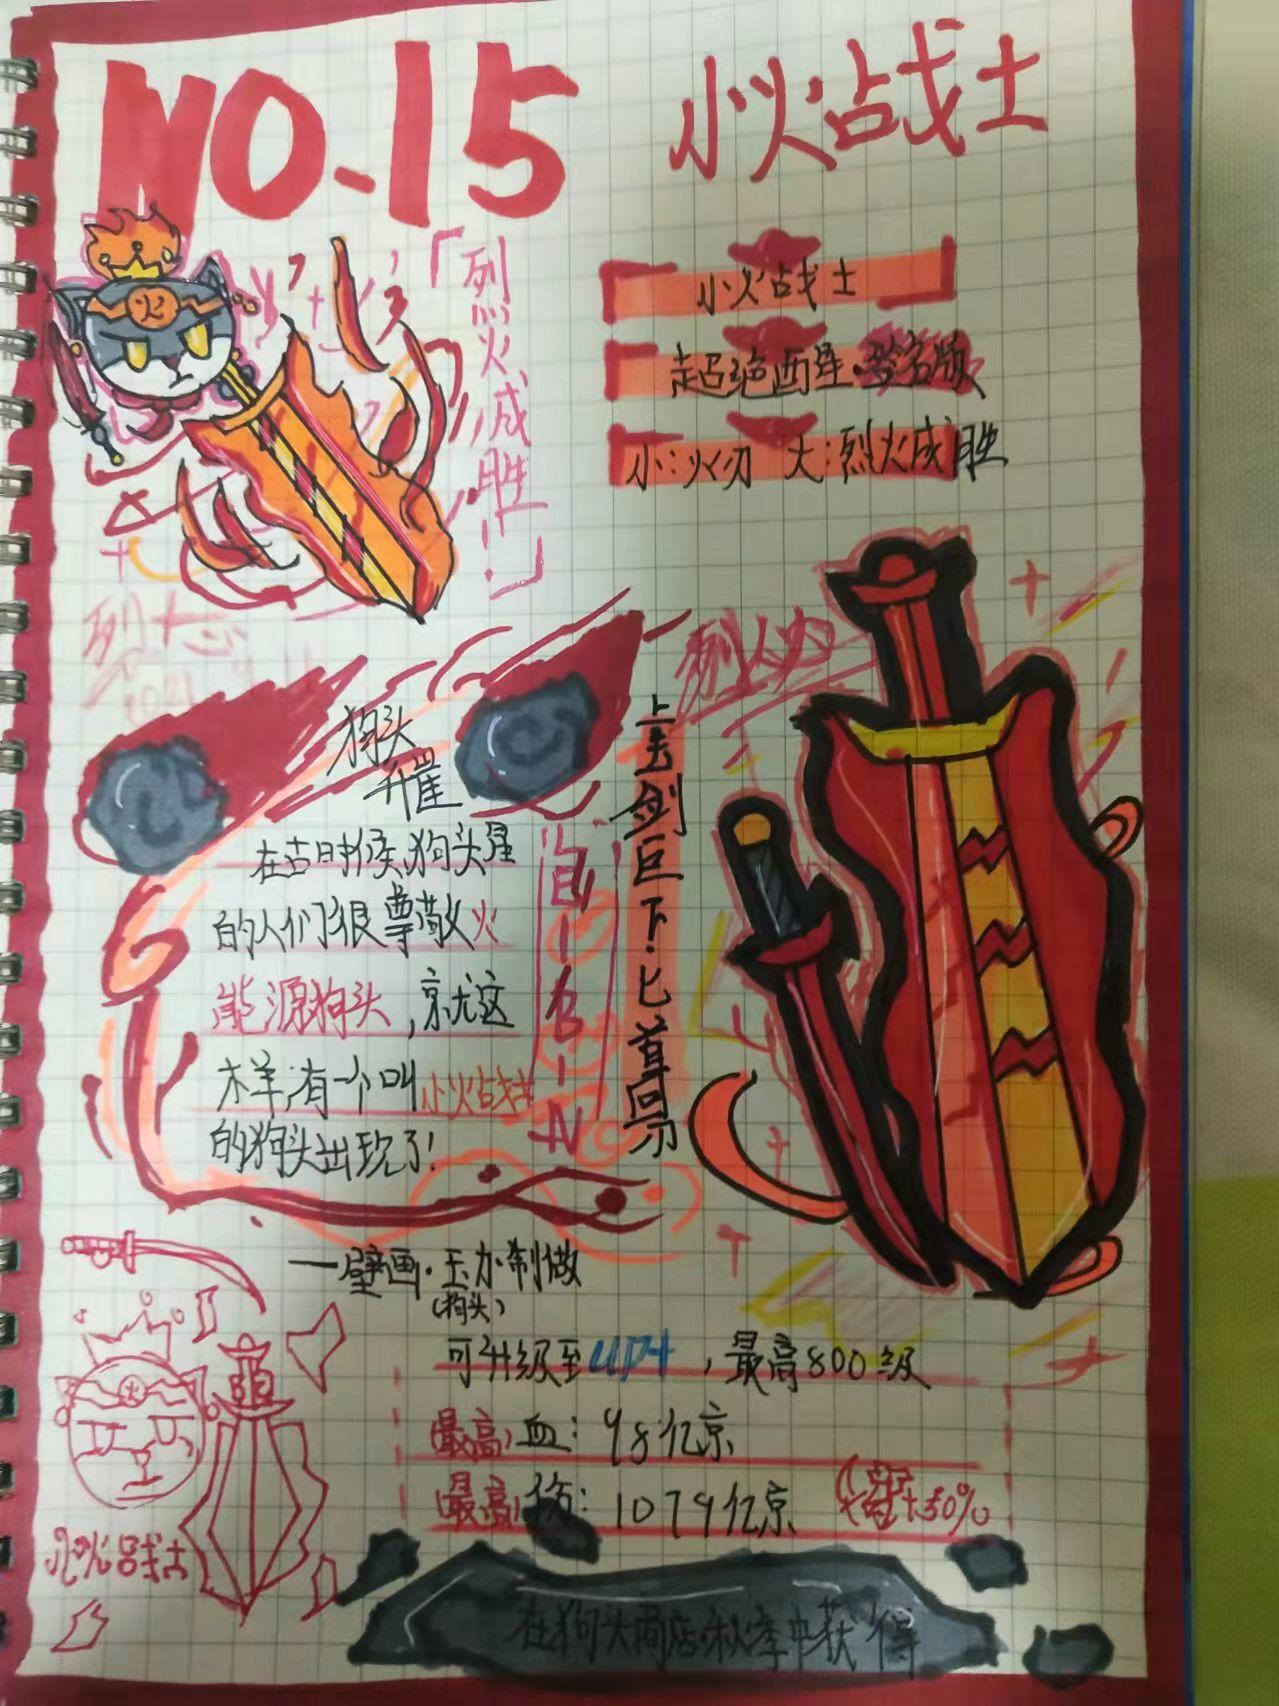 NO.15
小火战士
「烈火成胜!」
小火战士
超绝西星·签名版
小:火刃 大:烈火成胜
火
狗头
在古时候,狗头星
的人们很尊敬火
能源狗头,就这
样,有一个叫小火战士
的狗头出现了!
上:巨剑 下:匕首
—壁画·玉力制做
(狗头)
可升级至UP+,最高800级
(最高)血:98亿京
(最高)伤:1079亿京
+30%
火
小火战士
在狗头商店·秋季中获得